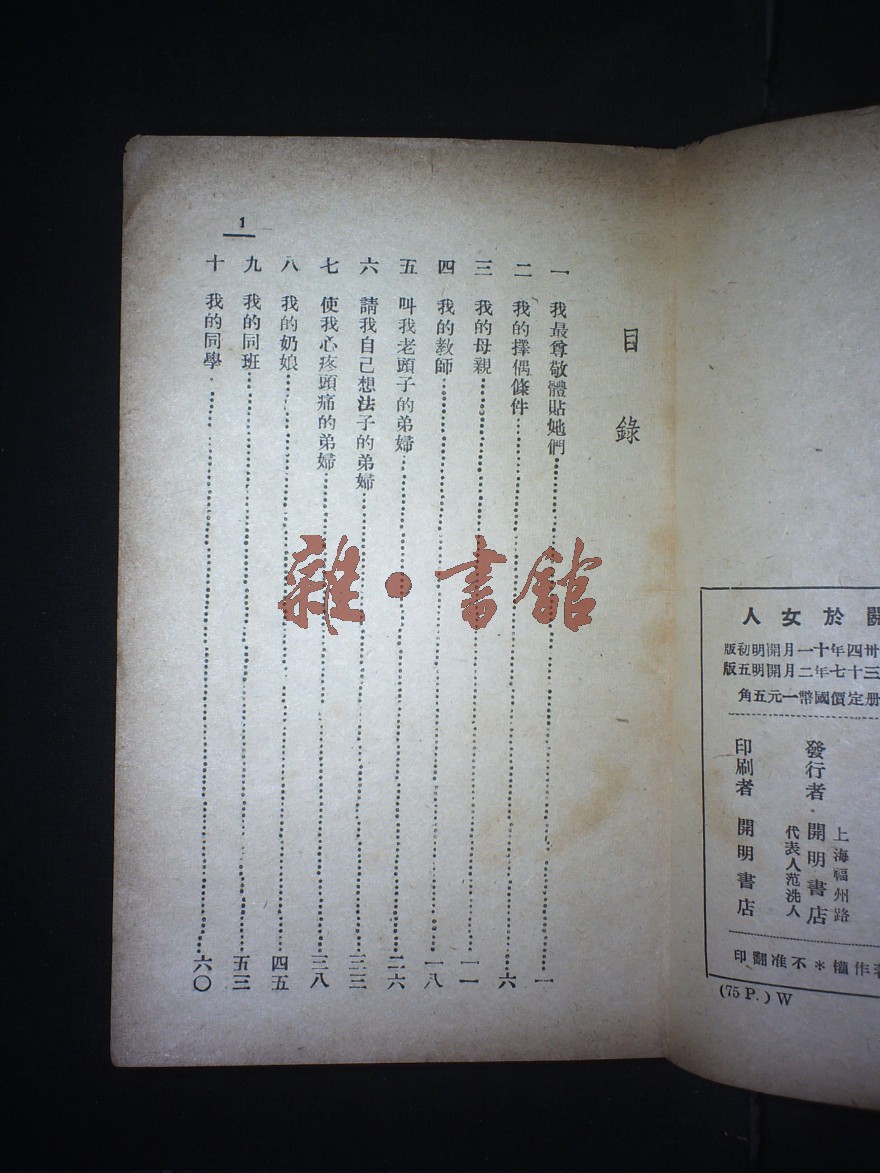 關於女人
卅四年十一月開明初版
三十七年二月開明五版
册定價國幣一元五角
上海福州路
發行者 開明書店
代表人范洗人
印刷者 開明書店
著作權＊不准翻印
(75 P.) W
目錄
一 我最尊敬體貼她們 一
二 我的擇偶條件 六
三 我的母親 一一
四 我的教師 一八
五 叫我老頭子的弟婦 二六
六 請我自己想法子的弟婦 三三
七 使我心疼頭痛的弟婦 三八
八 我的奶娘 四五
九 我的同班 五三
十 我的同學 六〇
1
雜・書館